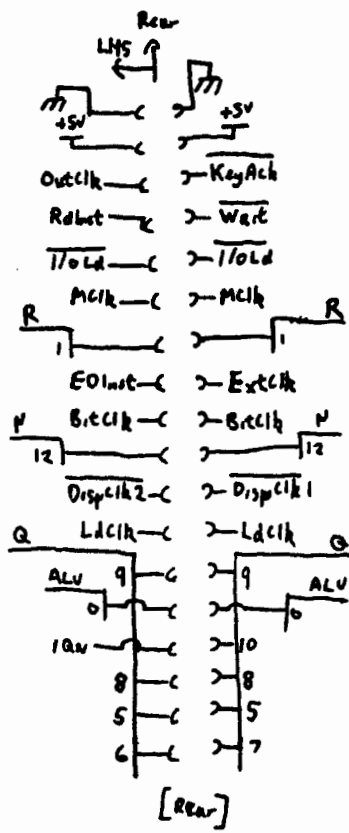 Rear
LHS
+5V +5V
OutClk KeyAck
RdInst Wait
I/OLd I/OLd
MClk MClk
R R
1 1
EOInst ExtClk
BitClk BitClk
N N
12 12
DispClk2 DispClk1
LdClk LdClk
Q Q
9 9
ALU ALU
0 0
IQN 10
8 8
5 5
6 7
[Rear]